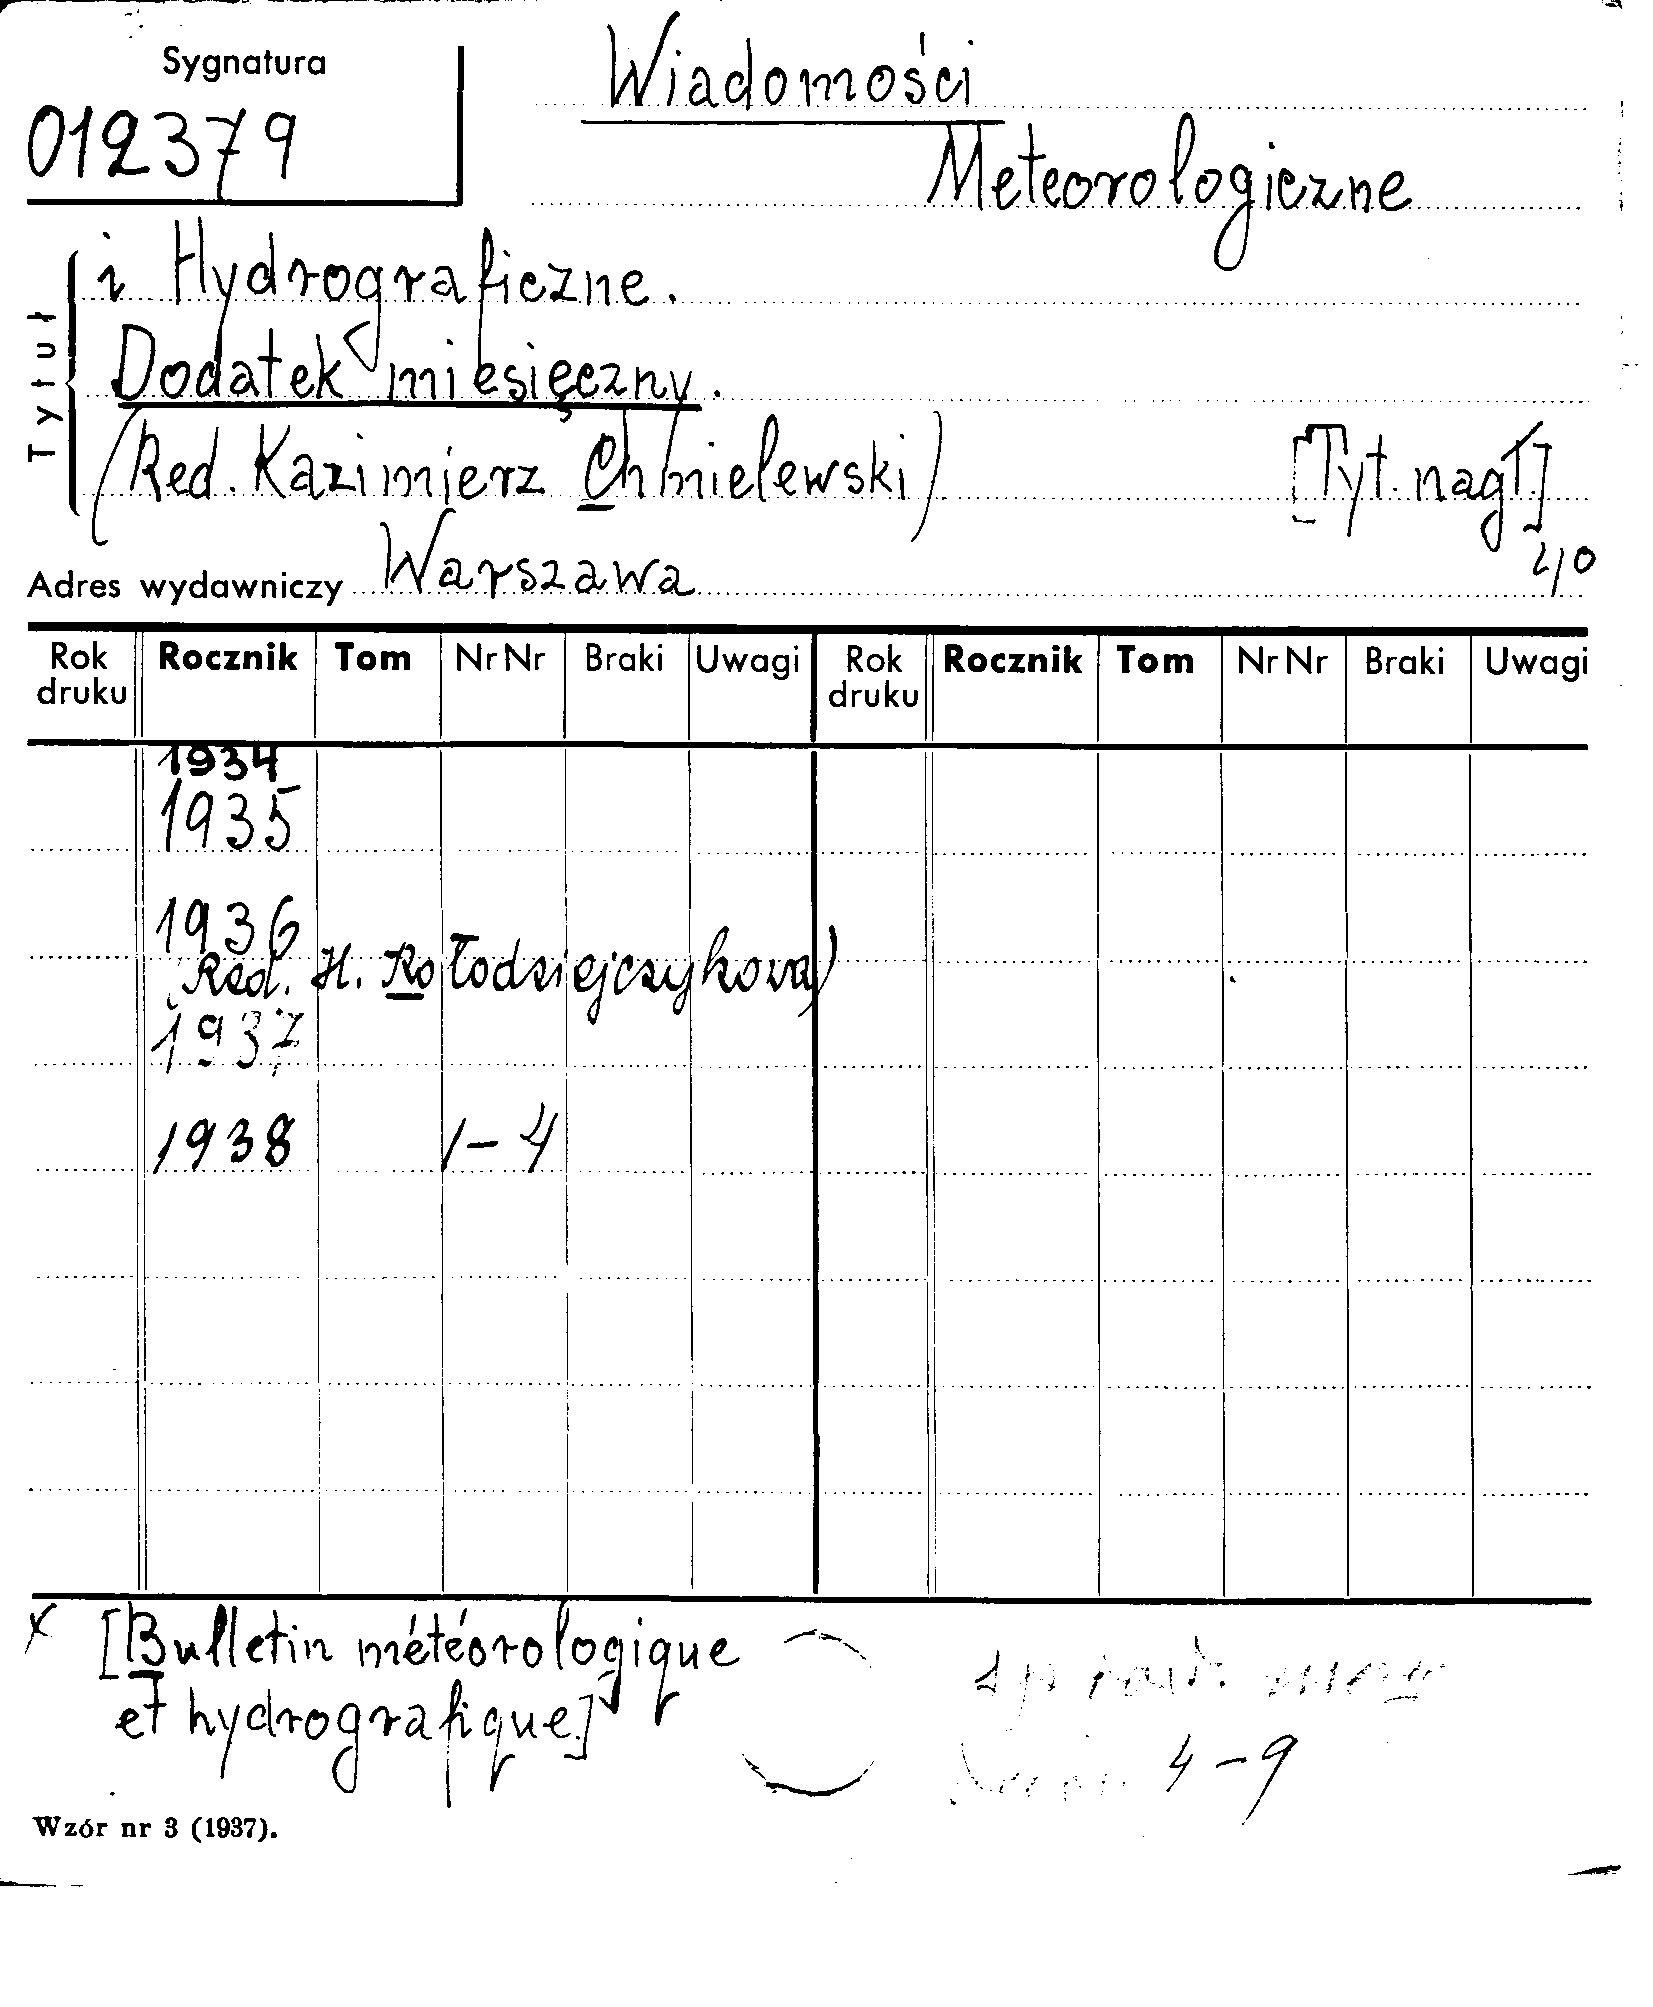 Sygnatura
012379
Wiadomości
Meteorologiczne
Tytuł
i Hydrograficzne.
Dodatek miesięczny.
(Red. Kazimierz Chmielewski) [Tyt. nagł.]
4°
Adres wydawniczy Warszawa
Rok druku Rocznik Tom Nr Nr Braki Uwagi Rok druku Rocznik Tom Nr Nr Braki Uwagi
1934
1935
1936
(Red. H. Kołodziejczykowa)
1937
1938 1-4
x [Bulletin météorologique
et hydrografique]
4-9
Wzór nr 3 (1937).